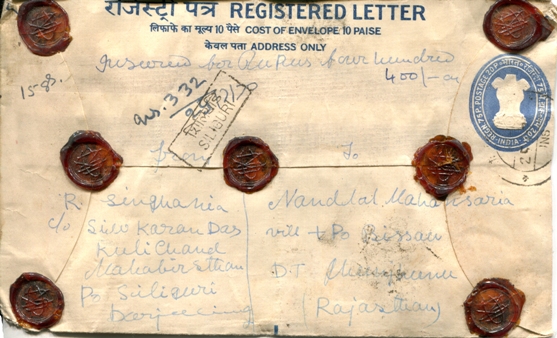 रजिस्ट्री पत्र REGISTERED LETTER
लिफाफे का मूल्य 10 पैसे COST OF ENVELOPE 10 PAISE
केवल पता ADDRESS ONLY
Insured for Rupees four hundred
400/- on
15 gs.
ins. 332
SILIGURI
INDIA
From
To
R. Singhania
c/o Karan Das
Kuli Chand
Mahabir Sthan
Po Siliguri
Darjeeling
Nandlal Mahansaria
vill + Po Bissau
DT
(Rajasthan)